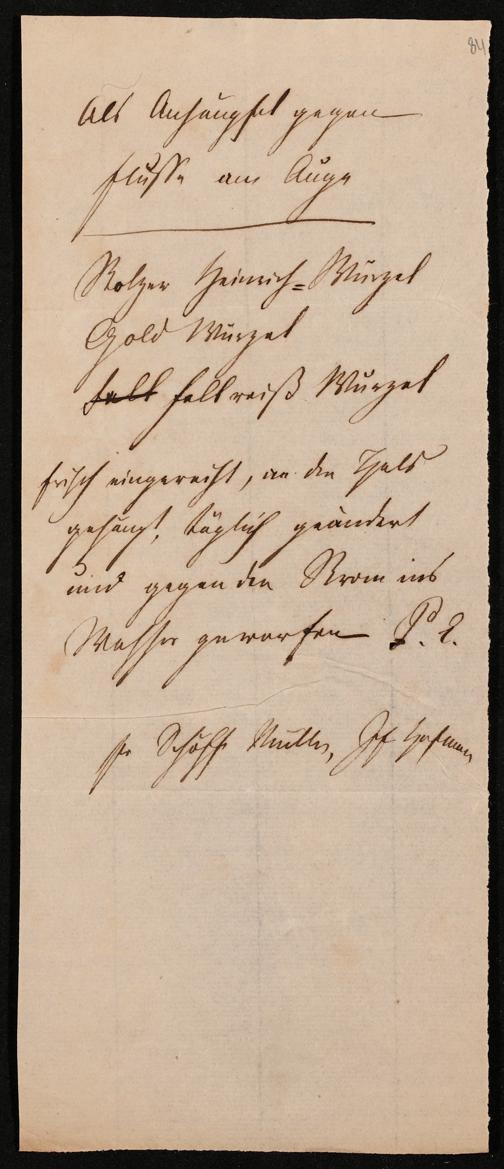 84
Als Anhängsel gegen
flüsse am Auge
Stolzer Heinrich=Wurzel
Gold Wurzel
fell fellreiß Wurzel
frisch eingereiht, an den Hals
gehängt, täglich geändert
und gegen den Strom ins
Wasser geworfen P.
Schöff Müller, Hofmann